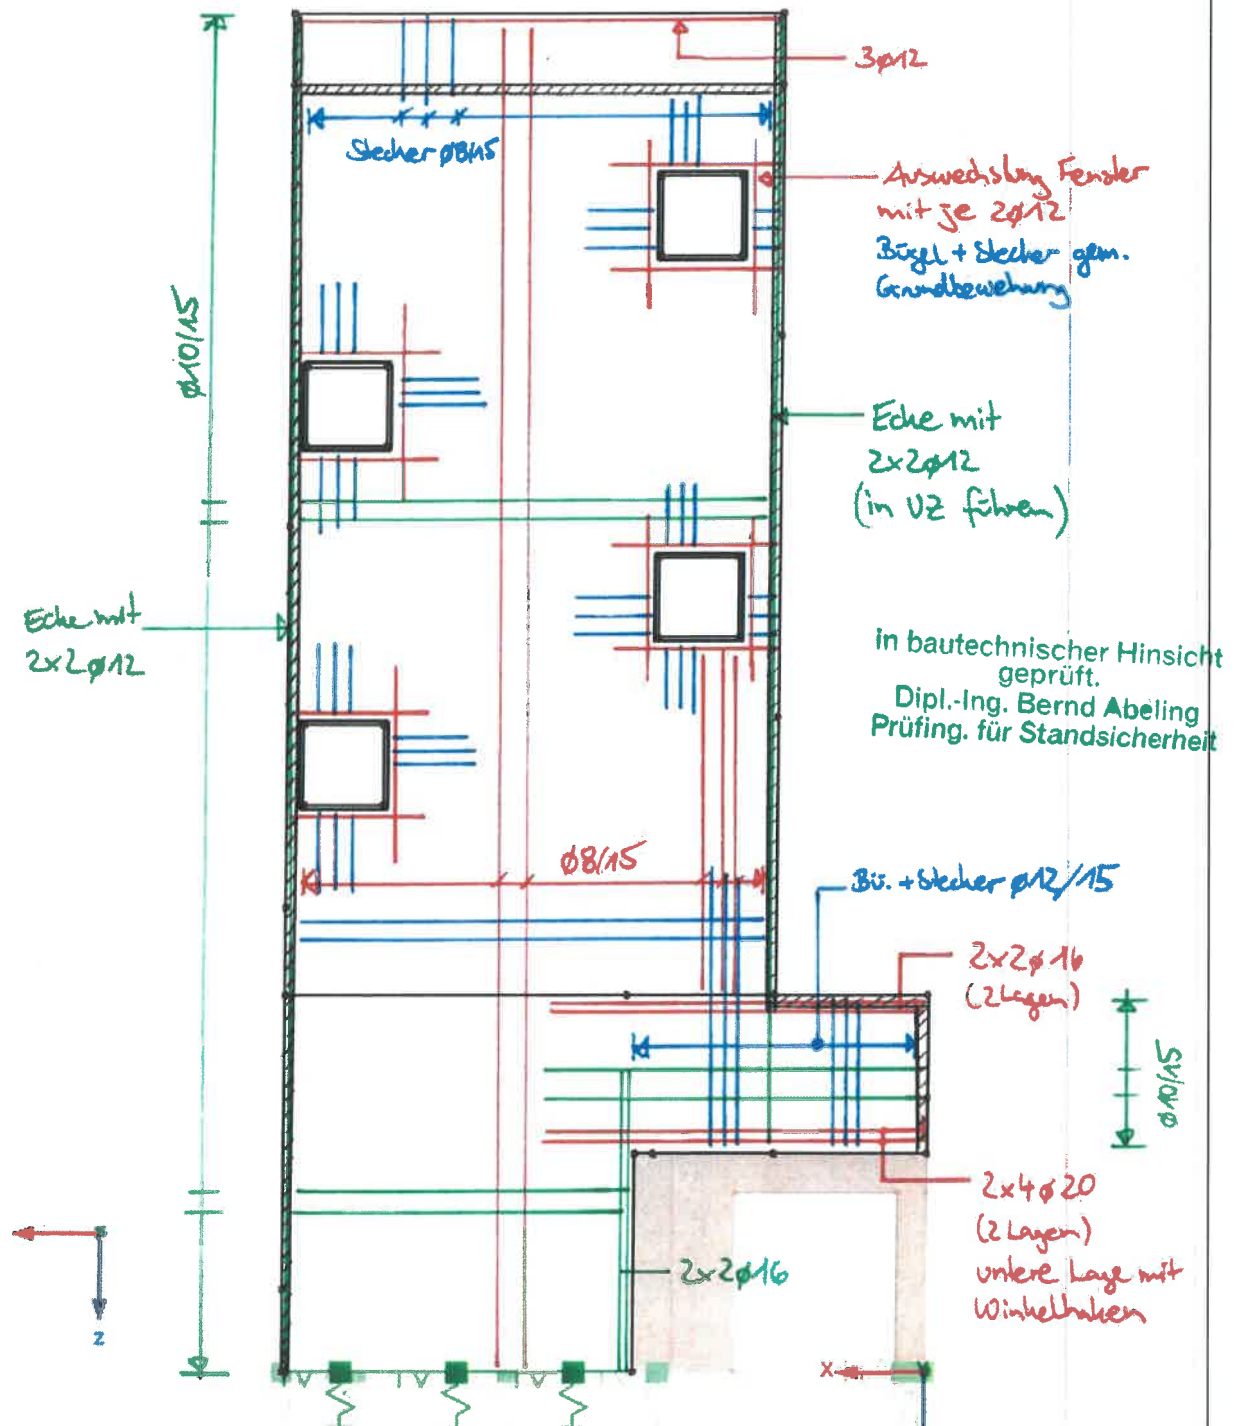 3ø12
Stecher ø8/15
Auswechslung Fenster
mit je 2ø12
Bügel + Stecher gem.
Grundbewehrung
ø10/15
Ecke mit
2x2ø12
(in VZ führen)
Ecke mit
2x2ø12
in bautechnischer Hinsicht
geprüft.
Dipl.-Ing. Bernd Abeling
Prüfing. für Standsicherheit
ø8/15
Bü. + Stecher ø12/15
2x2ø16
(2 Lagen)
ø10/15
2x4ø20
(2 Lagen)
untere Lage mit
Winkelhaken
2x2ø16
z
x